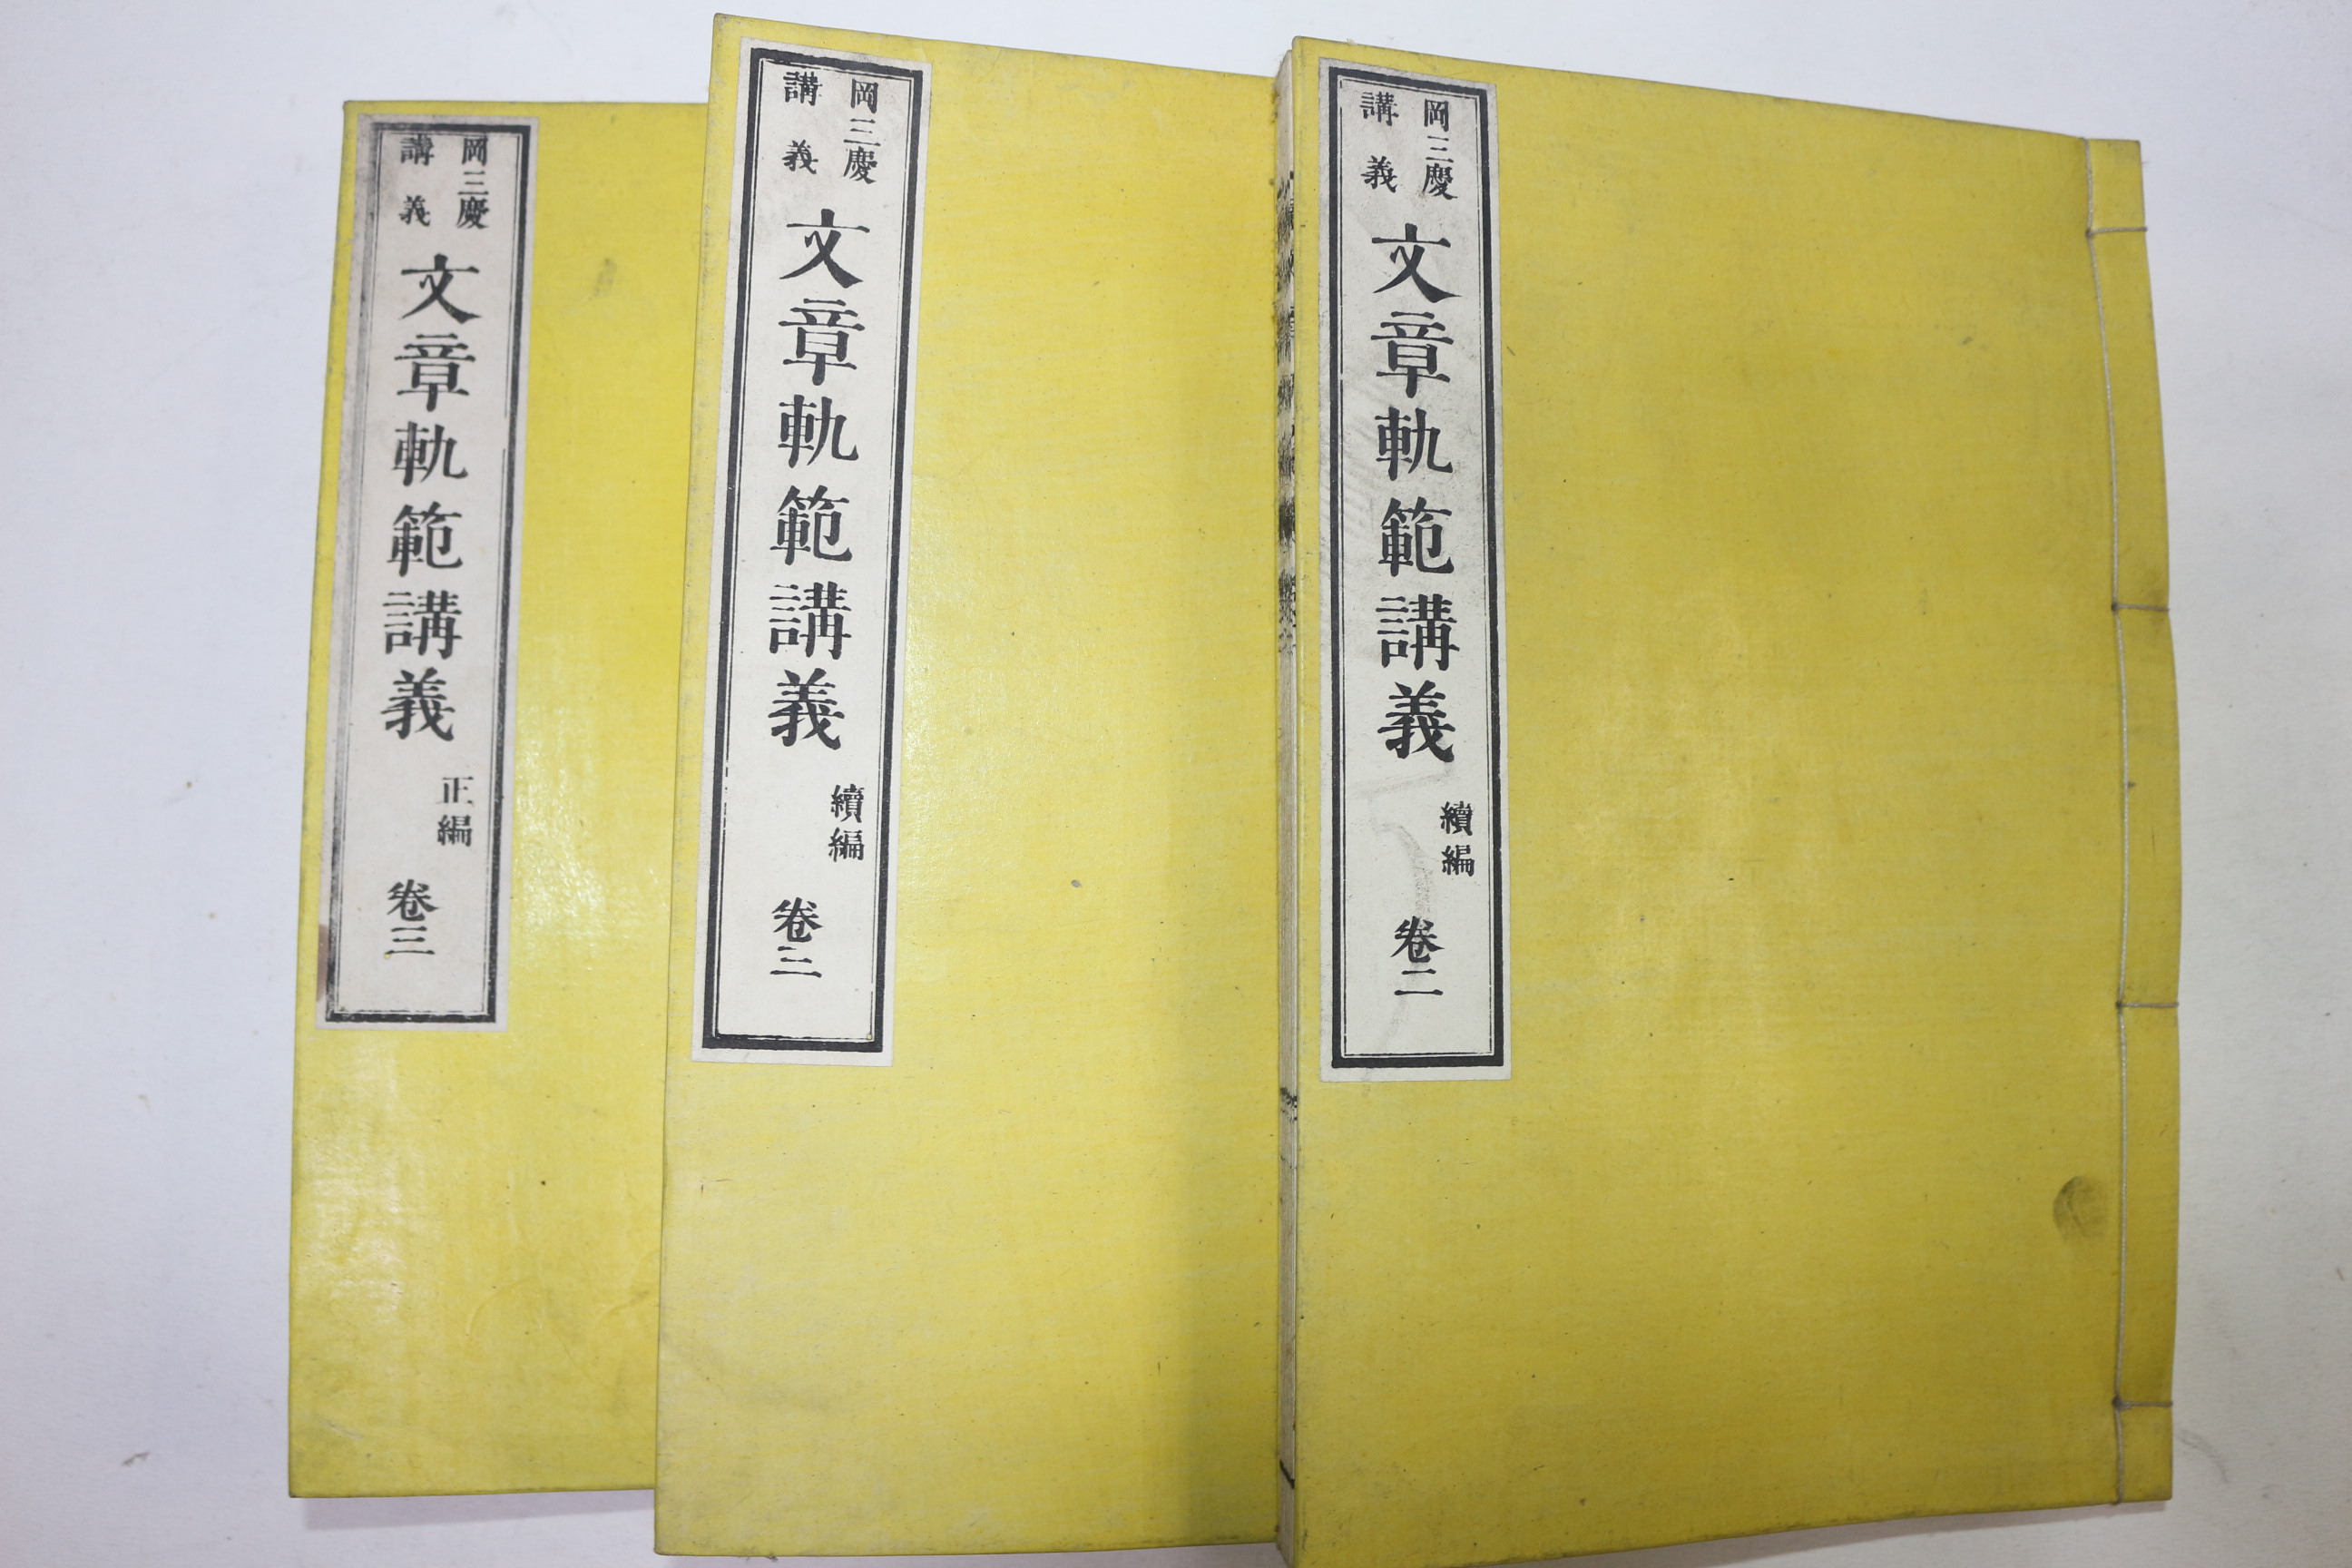 岡三慶
講義
文章軌範講義
續編
卷二
岡三慶
講義
文章軌範講義
續編
卷三
岡三慶
講義
文章軌範講義
正編
卷三